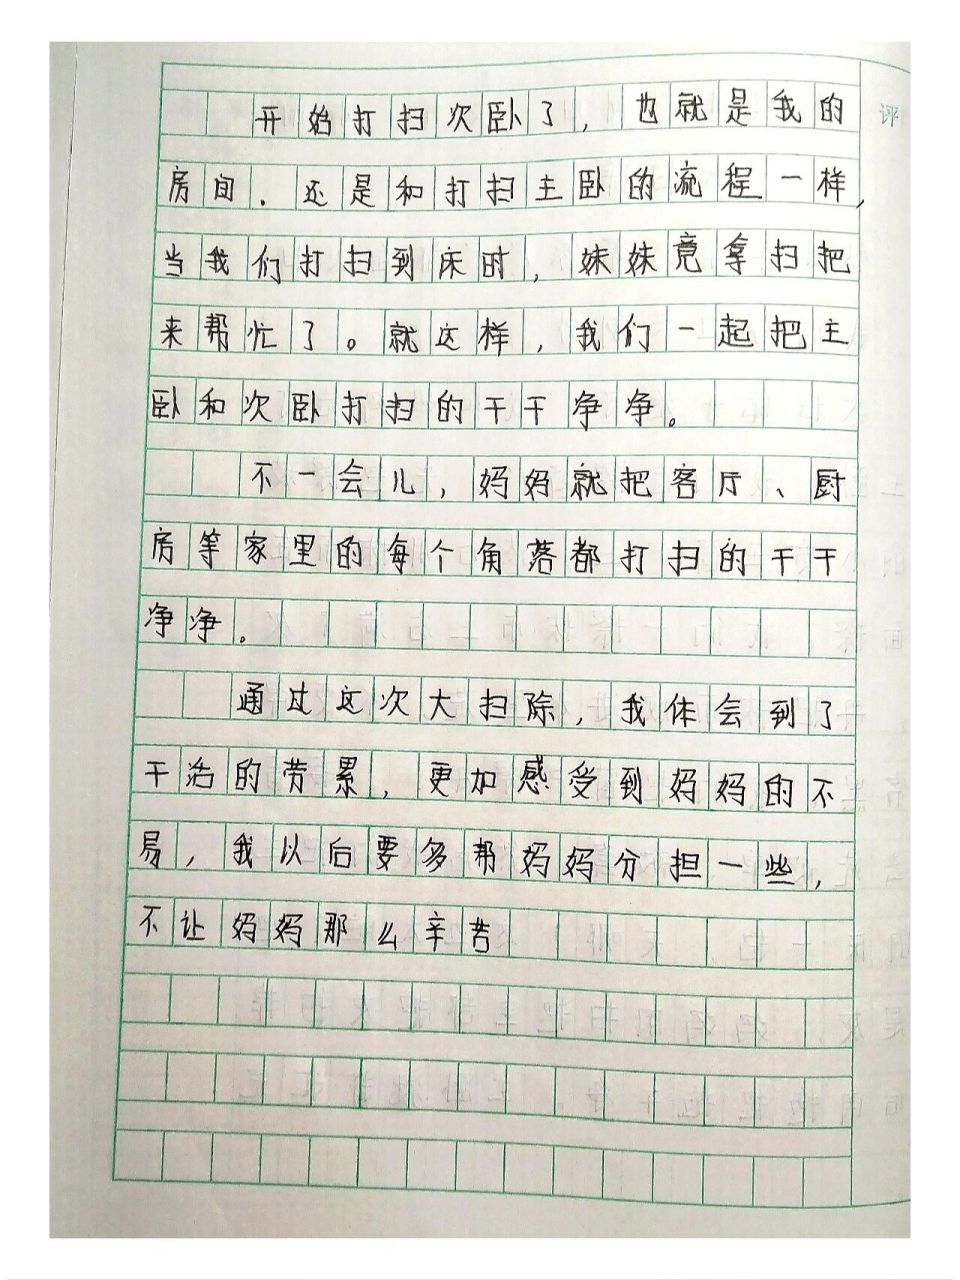 开始打扫次卧了，也就是我的
评
房间．还是和打扫主卧的流程一样，
当我们打扫到床时，妹妹竟拿扫把
来帮忙了。就这样，我们一起把主
卧和次卧打扫的干干净净。
不一会儿，妈妈就把客厅、厨
房等家里的每个角落都打扫的干干
净净。
通过这次大扫除，我体会到了
干活的劳累，更加感受到妈妈的不
易，我以后要多帮妈妈分担一些，
不让妈妈那么辛苦